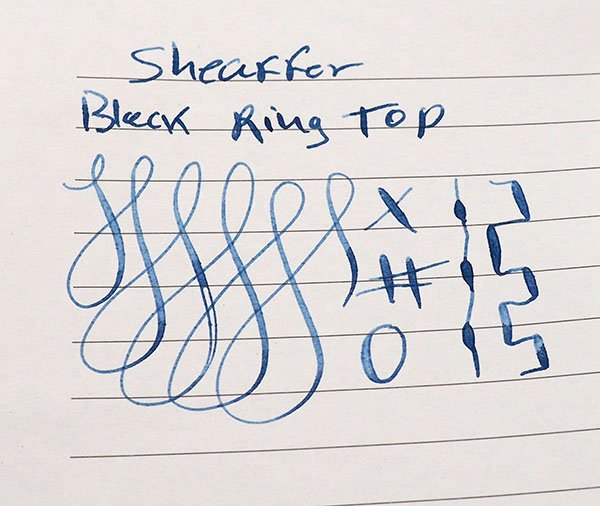 Sheaffer
Black Ring Top
X
#
O